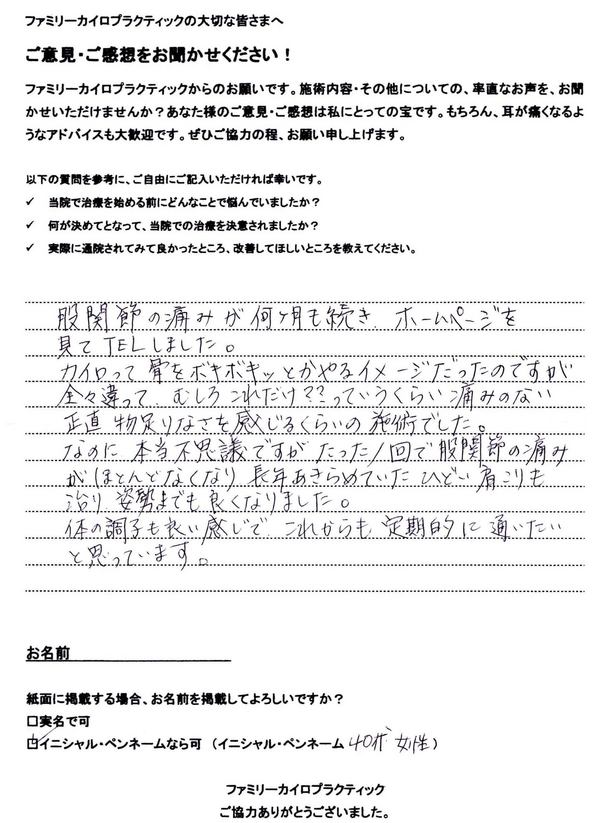 ファミリーカイロプラクティックの大切な皆さまへ
ご意見・ご感想をお聞かせください！
ファミリーカイロプラクティックからのお願いです。施術内容・その他についての、率直なお声を、お聞
かせいただけませんか？あなた様のご意見・ご感想は私にとっての宝です。もちろん、耳が痛くなるよ
うなアドバイスも大歓迎です。ぜひご協力の程、お願い申し上げます。
以下の質問を参考に、ご自由にご記入いただければ幸いです。
✓ 当院で治療を始める前にどんなことで悩んでいましたか？
✓ 何が決めてとなって、当院での治療を決意されましたか？
✓ 実際に通院されてみて良かったところ、改善してほしいところを教えてください。
股関節の痛みが何ヶ月も続き、ホームページを
見てTELしました。
カイロって骨をボキボキッとかやるイメージだったのですが
全々違って、むしろこれだけ??っていうくらい痛みのない
正直物足りなさを感じるくらいの施術でした。
なのに本当不思議ですがたった1回で股関節の痛み
がほとんどなくなり長年あきらめていたひどい肩こりも
治り、姿勢までも良くなりました。
体の調子も良い感じで、これからも定期的に通いたい
と思っています。
お名前
紙面に掲載する場合、お名前を掲載してよろしいですか？
□実名で可
☑イニシャル・ペンネームなら可（イニシャル・ペンネーム 40代 女性）
ファミリーカイロプラクティック
ご協力ありがとうございました。